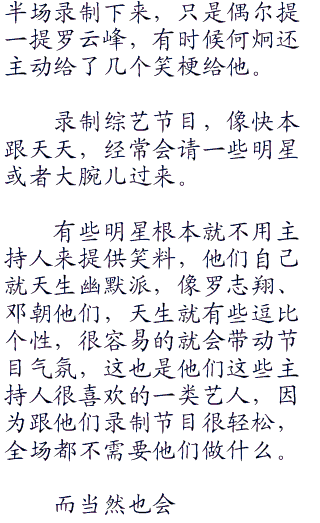 半场录制下来，只是偶尔提
一提罗云峰，有时候何炯还
主动给了几个笑梗给他。
录制综艺节目，像快本
跟天天，经常会请一些明星
或者大腕儿过来。
有些明星根本就不用主
持人来提供笑料，他们自己
就天生幽默派，像罗志翔、
邓朝他们，天生就有些逗比
个性，很容易的就会带动节
目气氛，这也是他们这些主
持人很喜欢的一类艺人，因
为跟他们录制节目很轻松，
全场都不需要他们做什么。
而当然也会